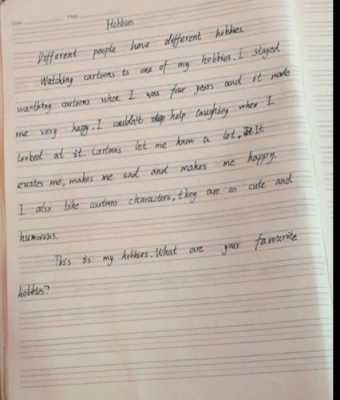 Hobbies
Different people have different hobbies.
Watching cartoons is one of my hobbies. I stayed
wacthing cartoons when I was four years and it made
me very happy. I couldn't help laughing when I
looked at it. Cartoons let me know a lot. It
excites me, makes me sad and makes me happy.
I also like cartoons characters, they are so cute and
humorous.
This is my hobbies. What are your favourite
hobbies?